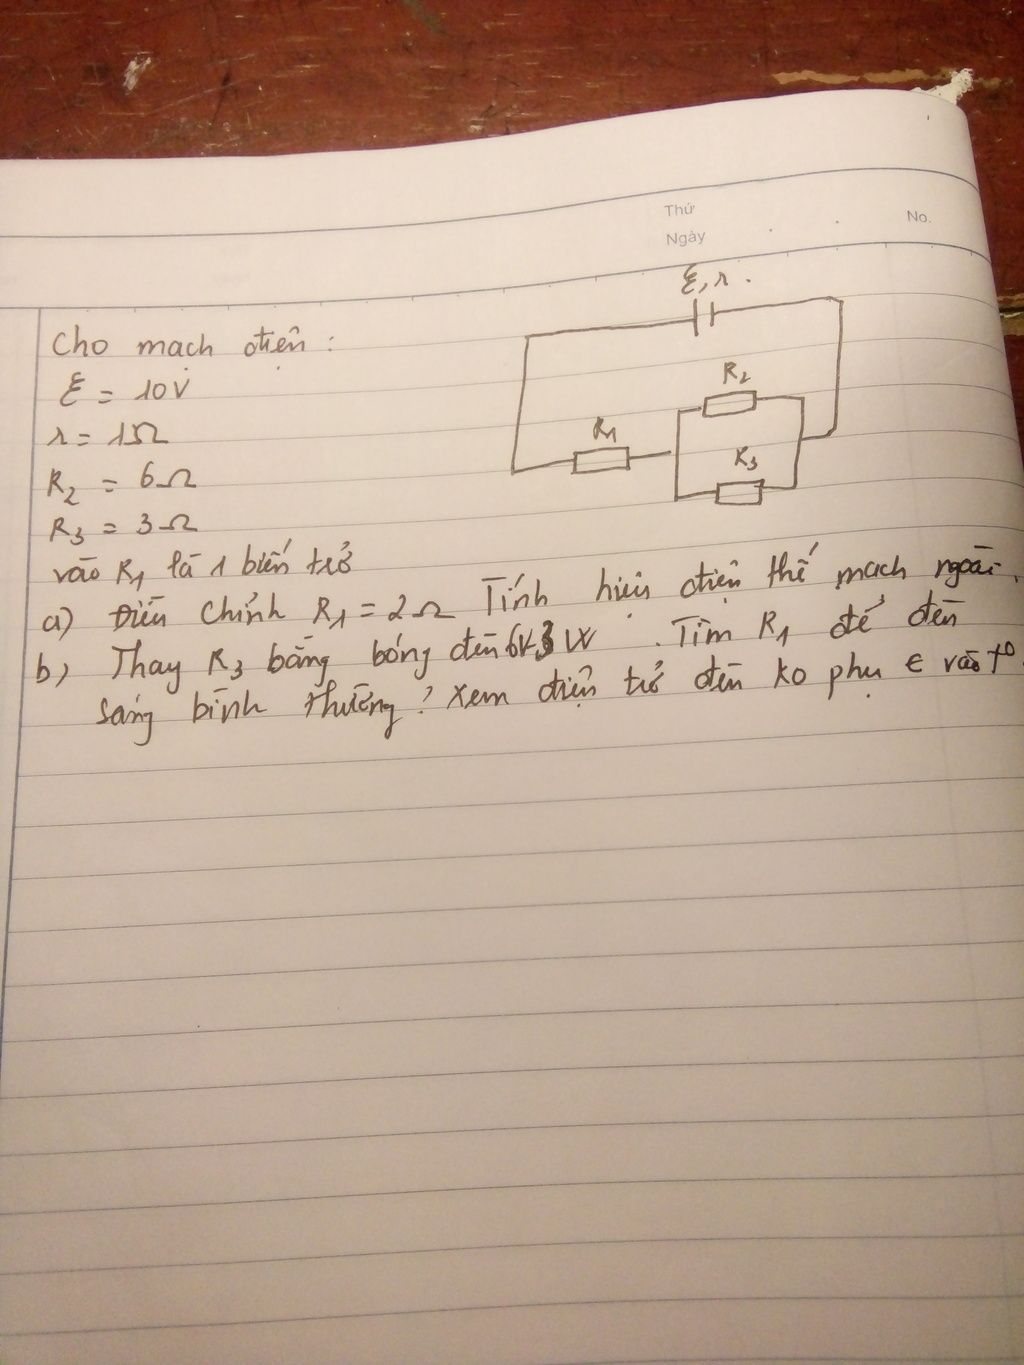 Thứ
No.
Ngày
ξ, r.
Cho mạch điện:
ξ = 10V
R2
r = 1Ω
R1
R3
R2 = 6Ω
R3 = 3Ω
vào R1 là 1 biến trở
a) Điều chỉnh R1 = 2Ω Tính hiệu điện thế mạch ngoài.
b) Thay R3 bằng bóng đèn 6V3W. Tìm R1 để đèn
sáng bình thường? Xem điện trở đèn ko phụ ∈ vào t°